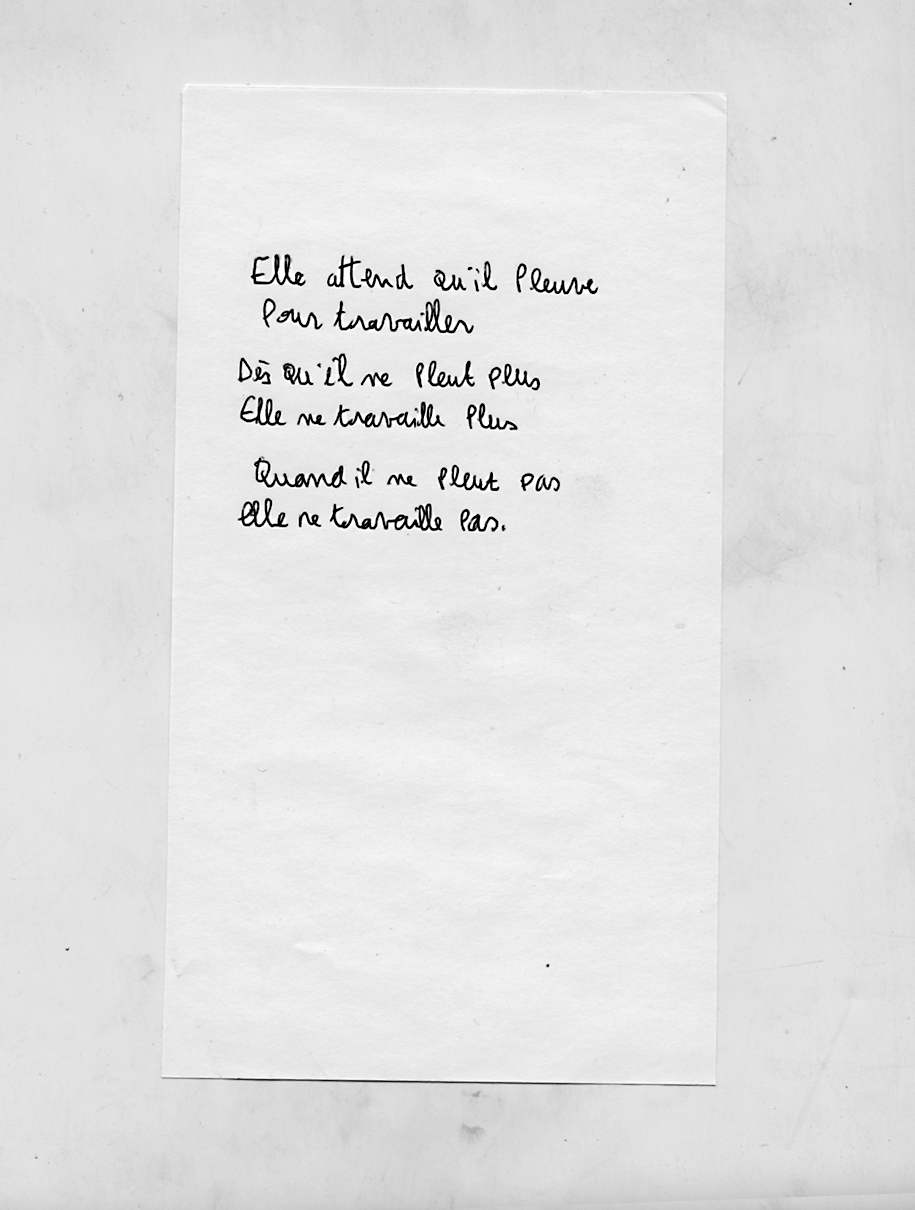 Elle attend qu'il pleuve
Pour travailler
Dès qu'il ne pleut plus
Elle ne travaille plus
Quand il ne pleut pas
elle ne travaille pas.